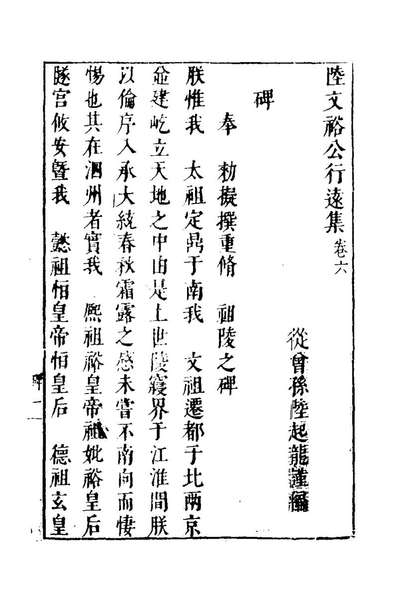 陸文裕公行遠集卷六
從曾孫陸起龍謹編
碑
奉 勑擬撰重脩 祖陵之碑
朕惟我 太祖定鼎于南我 文祖遷都于北兩京
並建屹立天地之中由是上世陵寢界于江淮間朕
以倫序入承大統春秋霜露之感未嘗不南向而悽
惕也其在泗州者實我 熙祖裕皇帝祖妣裕皇后
隧宫攸安曁我 懿祖恒皇帝恒皇后 德祖玄皇